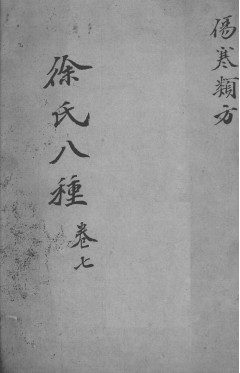 傷寒類方
徐氏八種
卷七